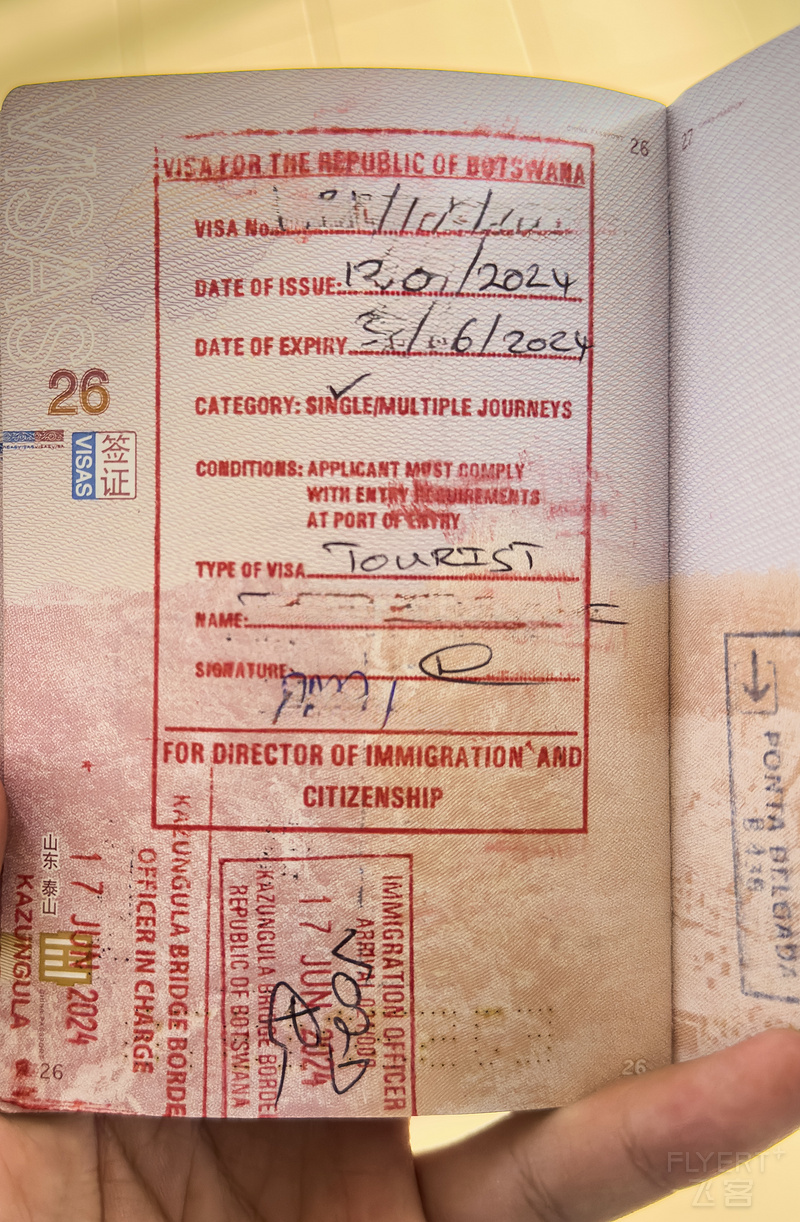 26
27
VISAS
VISA FOR THE REPUBLIC OF BOTSWANA
VISA No.
DATE OF ISSUE: /2024
DATE OF EXPIRY 6/2024
CATEGORY: SINGLE/MULTIPLE JOURNEYS
CONDITIONS: APPLICANT MUST COMPLY
WITH ENTRY REQUIREMENTS
AT PORT OF ENTRY
TYPE OF VISA TOURIST
NAME:
SIGNATURE:
FOR DIRECTOR OF IMMIGRATION AND
CITIZENSHIP
26
签证
VISAS
山东 泰山
IMMIGRATION OFFICER
ARRIVAL
17 JUN 2024
KAZUNGULA BRIDGE BORDER
REPUBLIC OF BOTSWANA
VOID
KAZUNGULA BRIDGE BORDE
OFFICER IN CHARGE
17 JUN 2024
KAZUNGULA
PONTA DELGADA
26
26
FLYERT+
飞客